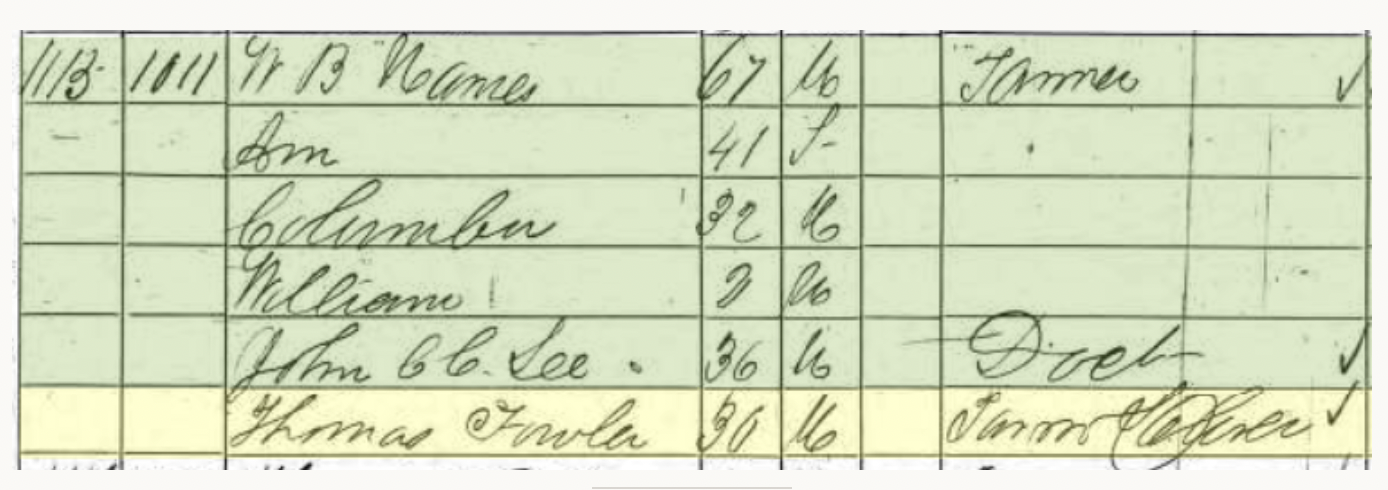 1113 1011 W B Names 67 M Farmer ✓
Ann 41 F
Columbus 32 M
William 2 M
John C C. Lee 36 M Doct ✓
Thomas Fowler 30 M Farm ✓